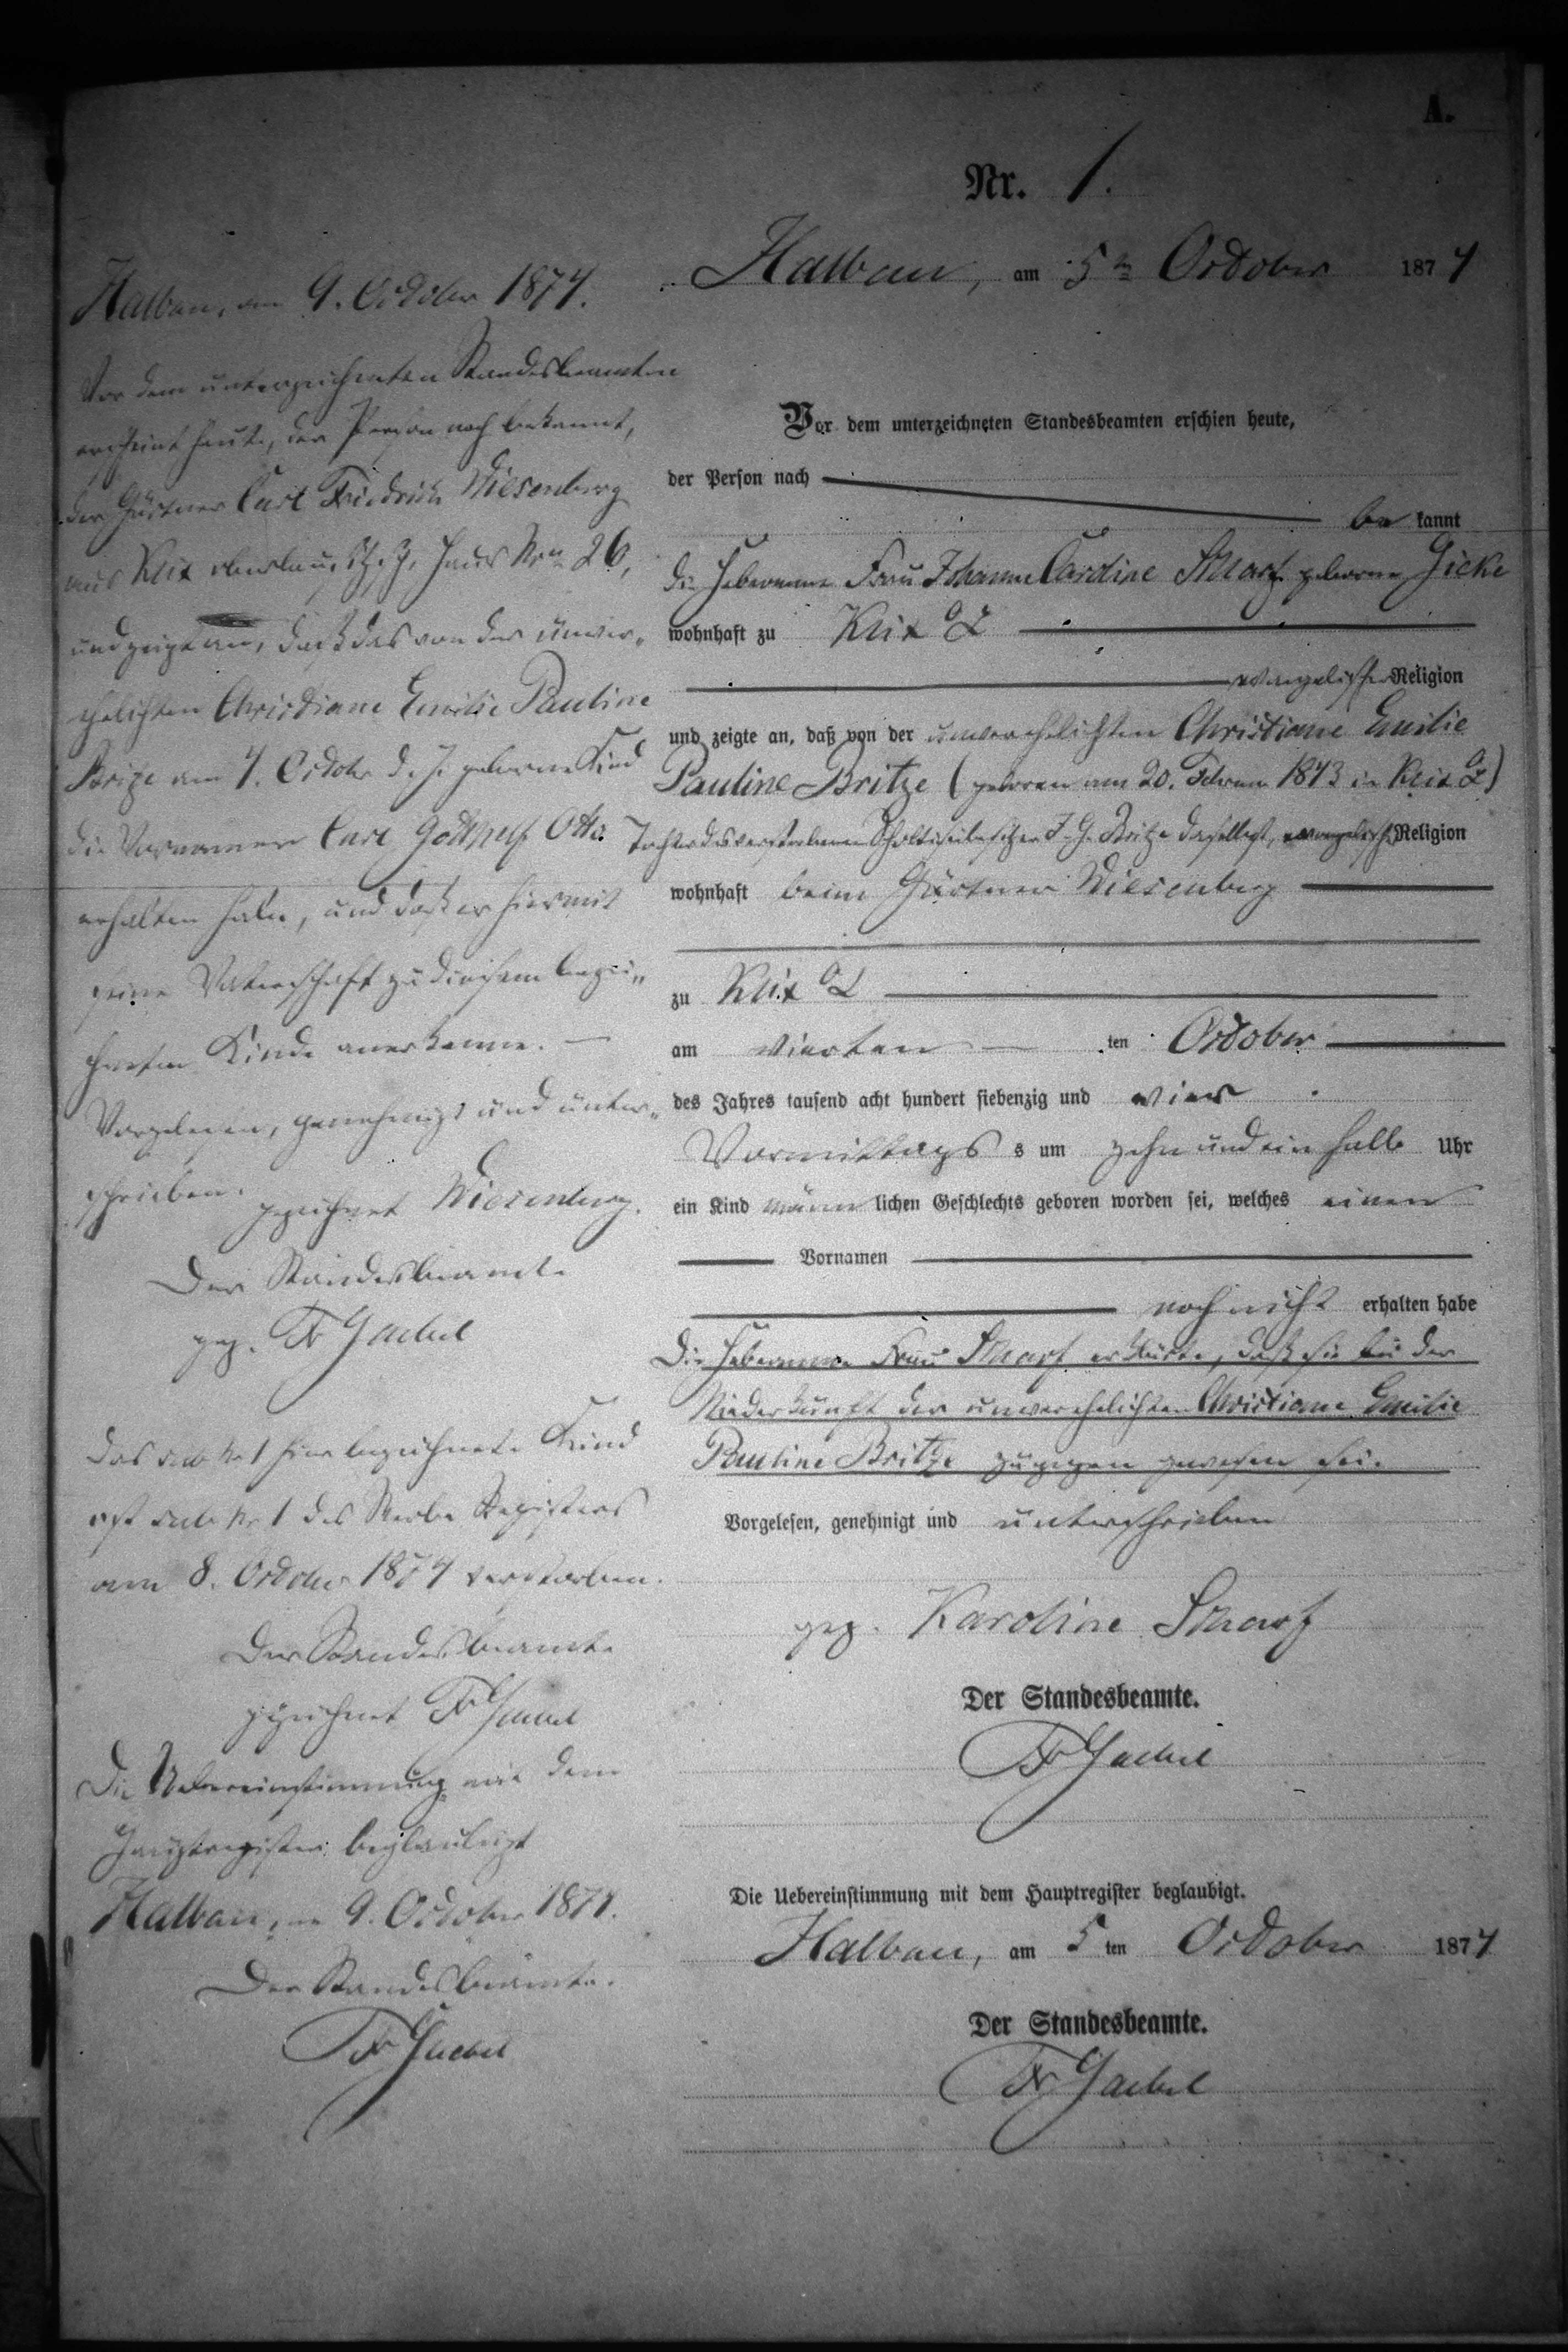 A.
Nr. 1.
Halbau, am 5ten October 1874
Vor dem unterzeichneten Standesbeamten erschien heute,
der Person nach
be kannt
die Hebeamme Frau Johanne Caroline Scharf geborene Gicke
wohnhaft zu Klix O/L
evangelischer Religion
und zeigte an, daß von der unverehelichten Christiane Emilie
Pauline Britze (geboren am 20. Februar 1843 in Klix O/L)
Tochter des verstorbenen Scholtiseibesitzer J. G. Britze daselbst, evangelisch Religion
wohnhaft beim Gärtner Wiesenberg
zu Klix O/L
am vierten ten October
des Jahres tausend acht hundert siebenzig und vier
Vormittags s um zehn und ein halb Uhr
ein Kind männ lichen Geschlechts geboren worden sei, welches einen
Vornamen
noch nicht erhalten habe
Die Hebeamme Frau Scharf erklärte, daß sie bei der
Niederkunft der unverehelichten Christiane Emilie
Pauline Britze zugegen gewesen sei.
Vorgelesen, genehmigt und unterschrieben
gez. Karoline Scharf
Der Standesbeamte.
Fr Gaebel
Die Uebereinstimmung mit dem Hauptregister beglaubigt.
Halbau, am 5 ten October 1874
Der Standesbeamte.
Fr Gaebel
Halbau, am 9. October 1874.
Vor dem unterzeichneten Standesbeamten
erscheint heute, der Person nach bekannt,
der Gärtner Carl Friedrich Wiesenberg
aus Klix Haus Nro 26,
und zeigt an, daß das von der unver„
ehelichten Christiane Emilie Pauline
Britze am 4. October d. J. geborene Kind
die Vornamen Carl Gotthelf Otto
erhalten habe, und daß er hiermit
seine Vaterschaft zu diesem bezei„
chneten Kinde anerkenne. —
Vorgelesen, genehmigt und unter„
schrieben.
gezeichnet Wiesenberg.
Der Standesbeamte
gez. Fr Gaebel
Das sub No 1 hier bezeichnete Kind
ist sub No 1 des Sterbe Registers
am 8. October 1874 verstorben.
Der Standesbeamte
gezeichnet Fr Gaebel
Die Uebereinstimmung mit dem
Hauptregister beglaubigt
Halbau, am 9. October 1874.
Der Standesbeamte.
Fr Gaebel